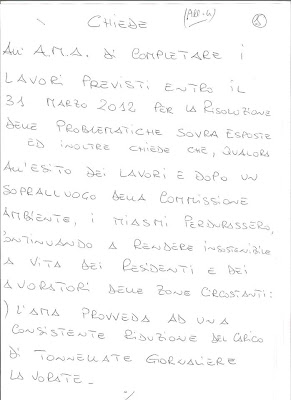 CHIEDE
(ALL. 4)
ALL' A.M.A. DI COMPLETARE I
LAVORI PREVISTI ENTRO IL
31 MARZO 2012 PER LA RISOLUZIONE
DELLE PROBLEMATICHE SOVRA ESPOSTE
ED INOLTRE CHIEDE CHE, QUALORA
ALL'ESITO DEI LAVORI E DOPO UN
SOPRALLUOGO DELLA COMMISSIONE
AMBIENTE, I MIASMI PERDURASSERO,
ONTINUANDO A RENDERE INSOSTENIBILE
A VITA DEI RESIDENTI E DEI
AVORATORI DELLE ZONE CIRCOSTANTI:
) L'AMA PROVVEDA AD UNA
CONSISTENTE RIDUZIONE DEL CARICO
DI TONNELLATE GIORNALIERE
LAVORATE.